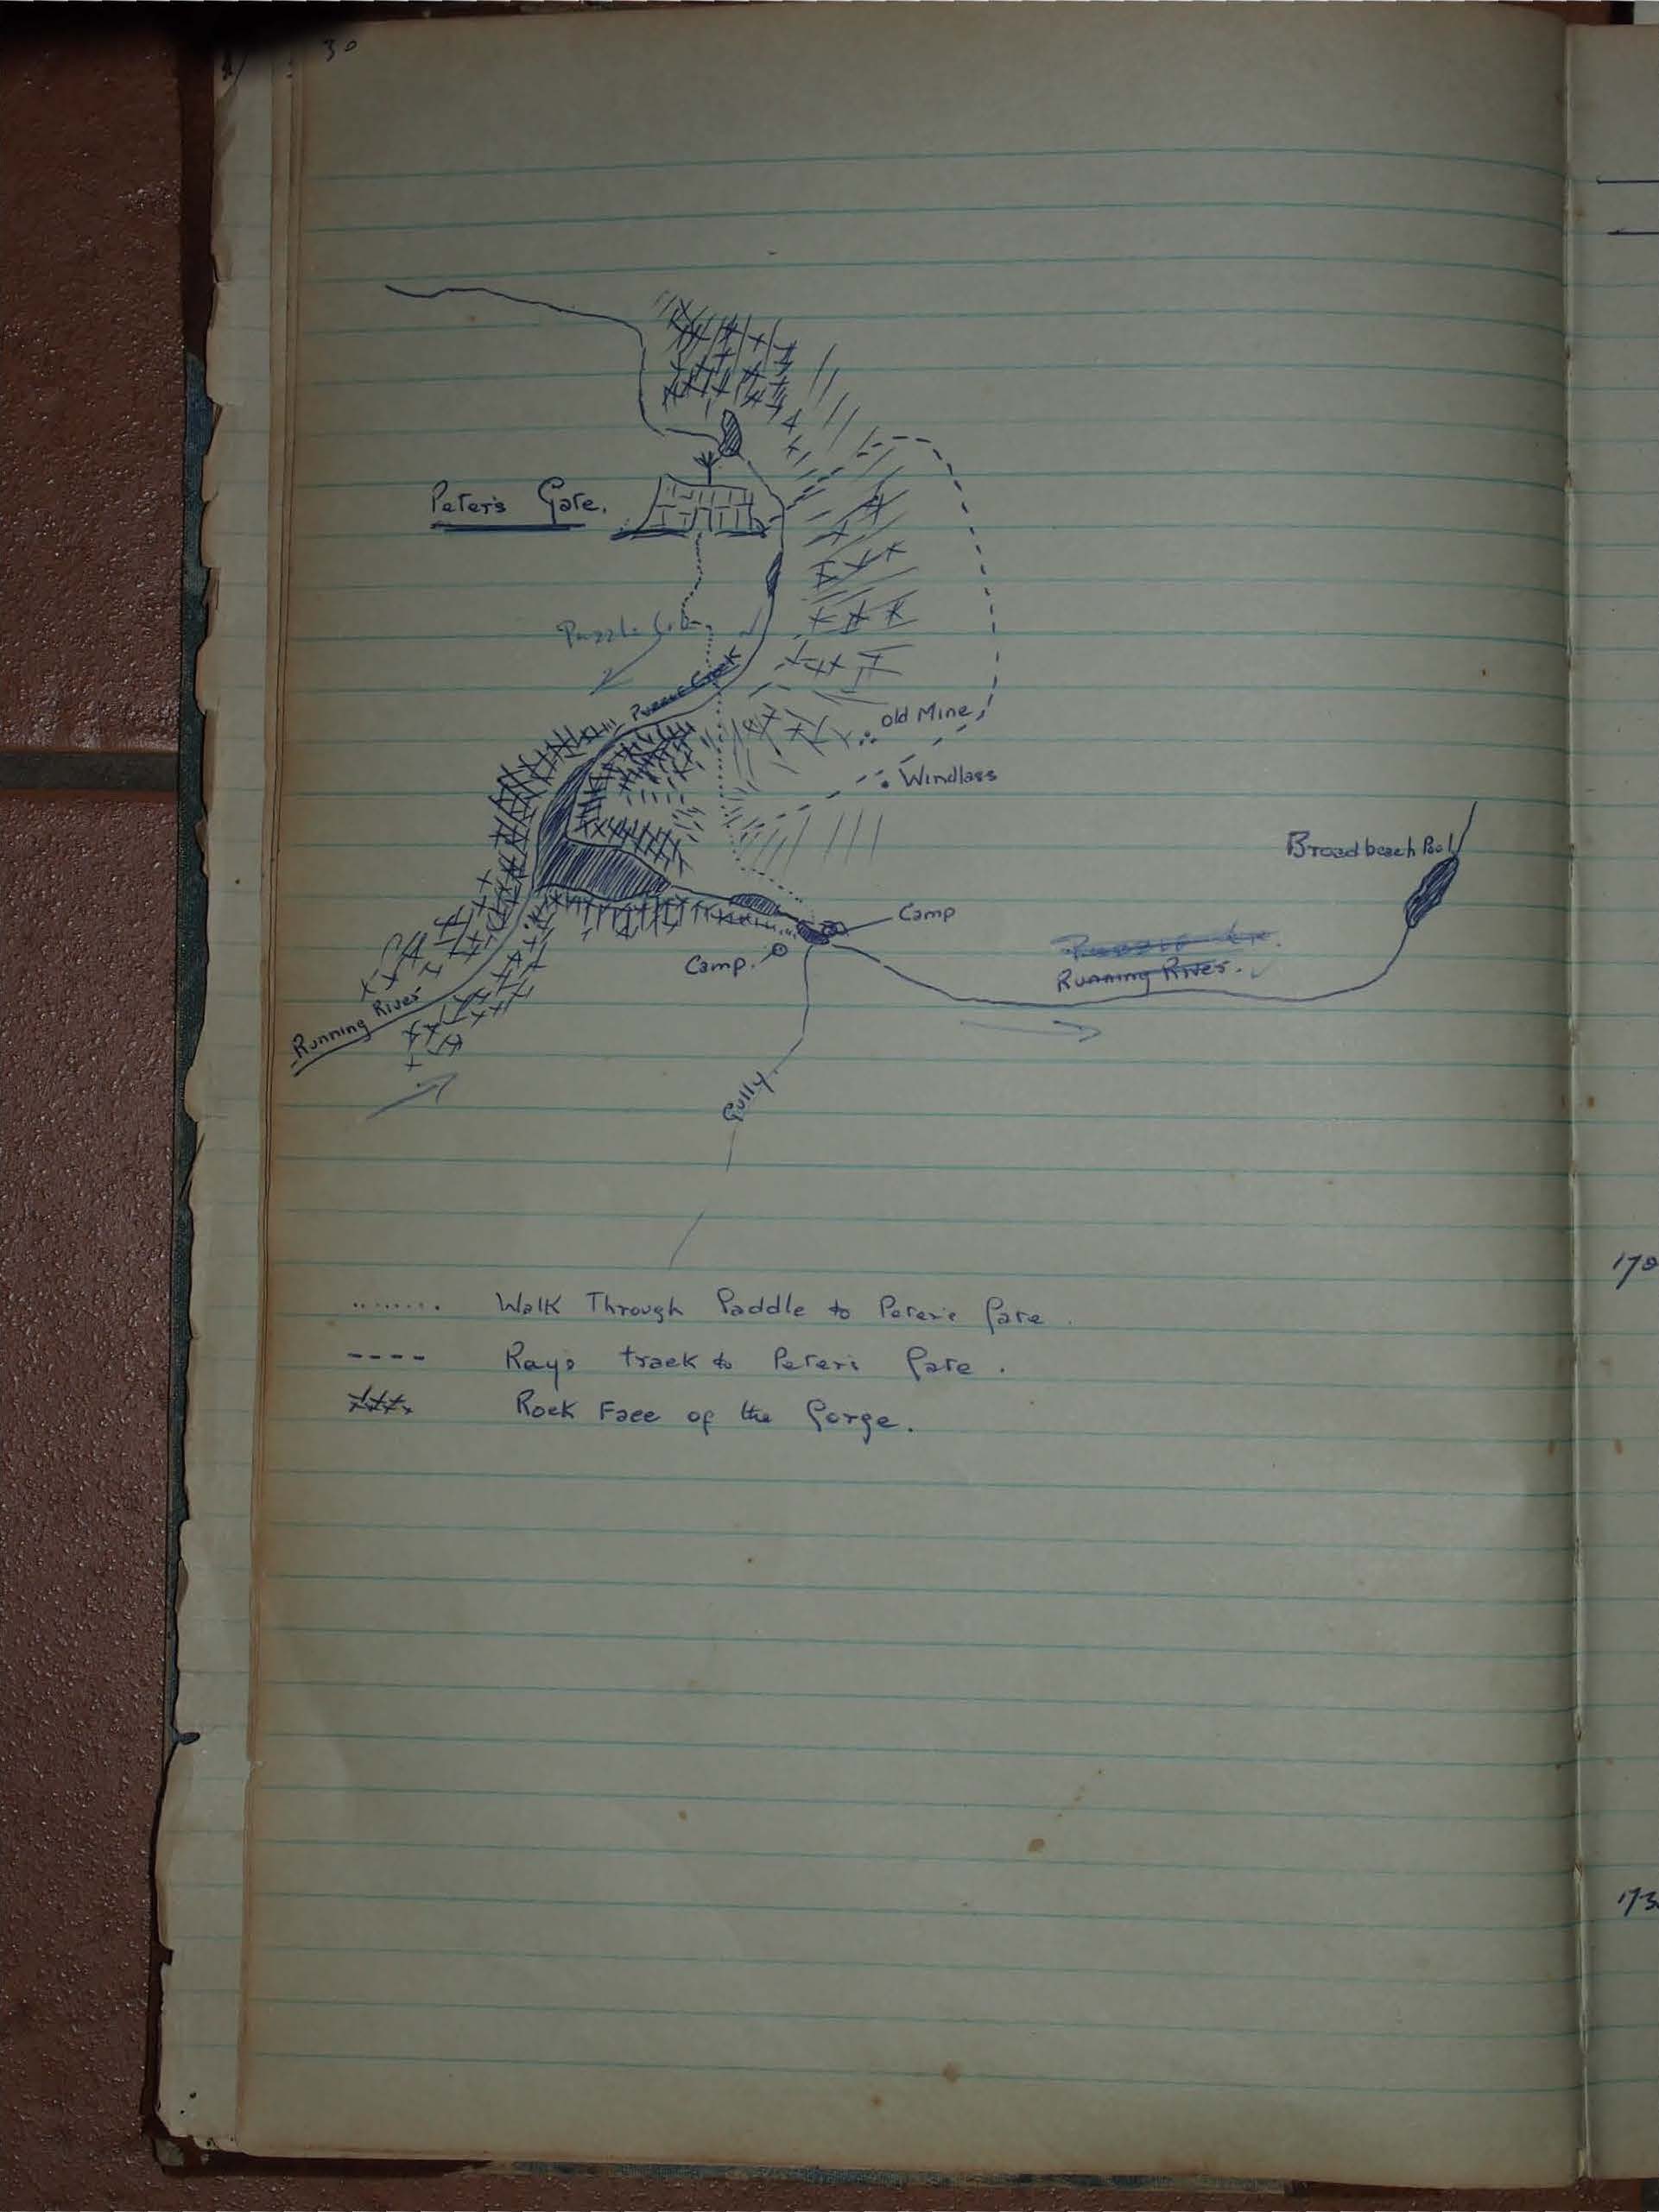 30
Peter's Gate.
Puzzle Creek
Old Mine
Windlass
Broadbeach Pool
Camp
Camp.
Running River.
Running River
Gully
Walk Through Saddle to Peter's Gate.
Ray's track to Peter's Gate.
Rock Face of the Gorge.
170
173